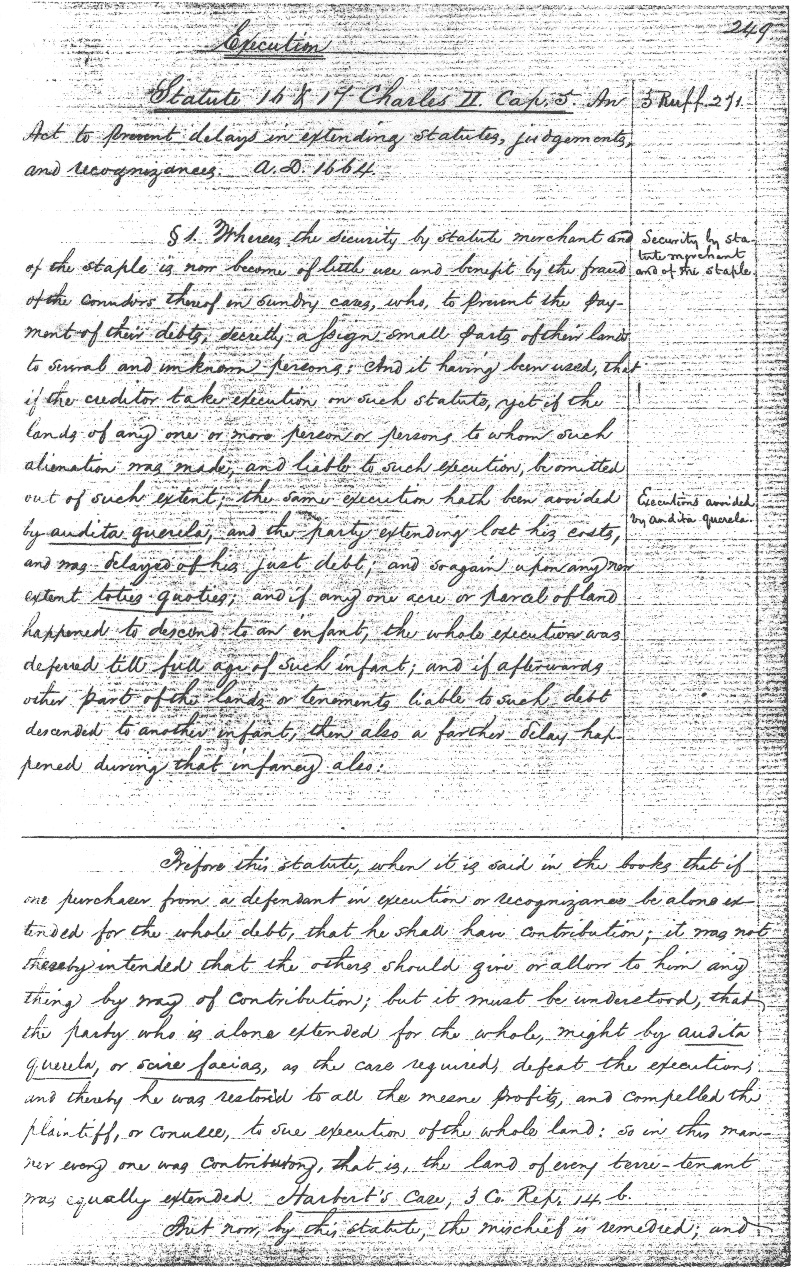 249
Execution
Statute 16 & 17 Charles II. Cap. 5. An
5 Ruff. 271.
Act to prevent delays in extending statutes, judgements,
and recognizances. A.D. 1664.
§ 1. Whereas the security by statute merchant and
of the staple is now become of little use and benefit by the fraud
of the conusors thereof in sundry cases, who, to prevent the pay-
ment of their debts, secretly assign small parts of their lands
to several and unknown persons: And it having been used, that
if the creditor take execution on such statute, yet if the
lands of any one or more person or persons to whom such
alienation was made, and liable to such execution, be omitted
out of such extent, the same execution hath been avoided
by audita querela, and the party extending lost his costs,
and was delayed of his just debt; and so again upon any new
extent toties quoties; and if any one acre or parcel of land
happened to descend to an infant, the whole execution was
deferred till full age of such infant; and if afterwards
other part of the lands or tenements liable to such debt
descended to another infant, then also a farther delay hap-
pened during that infancy also:
Security by sta-
tute merchant
and of the staple.
Executions avoided
by audita querela.
Before this statute, when it is said in the books that if
one purchaser from a defendant in execution or recognizance be alone ex-
tended for the whole debt, that he shall have contribution; it was not
thereby intended that the others should give or allow to him any
thing by way of contribution; but it must be understood, that
the party who is alone extended for the whole, might by audita
querela, or scire facias, as the case required, defeat the execution,
and thereby he was restored to all the mesne profits, and compelled the
plaintiff, or conusee, to sue execution of the whole land: so in this man-
ner every one was contributory, that is, the land of every terre-tenant
was equally extended. Harbert's Case, 3 Co. Rep. 14. b.
But now, by this statute, the mischief is remedied; and